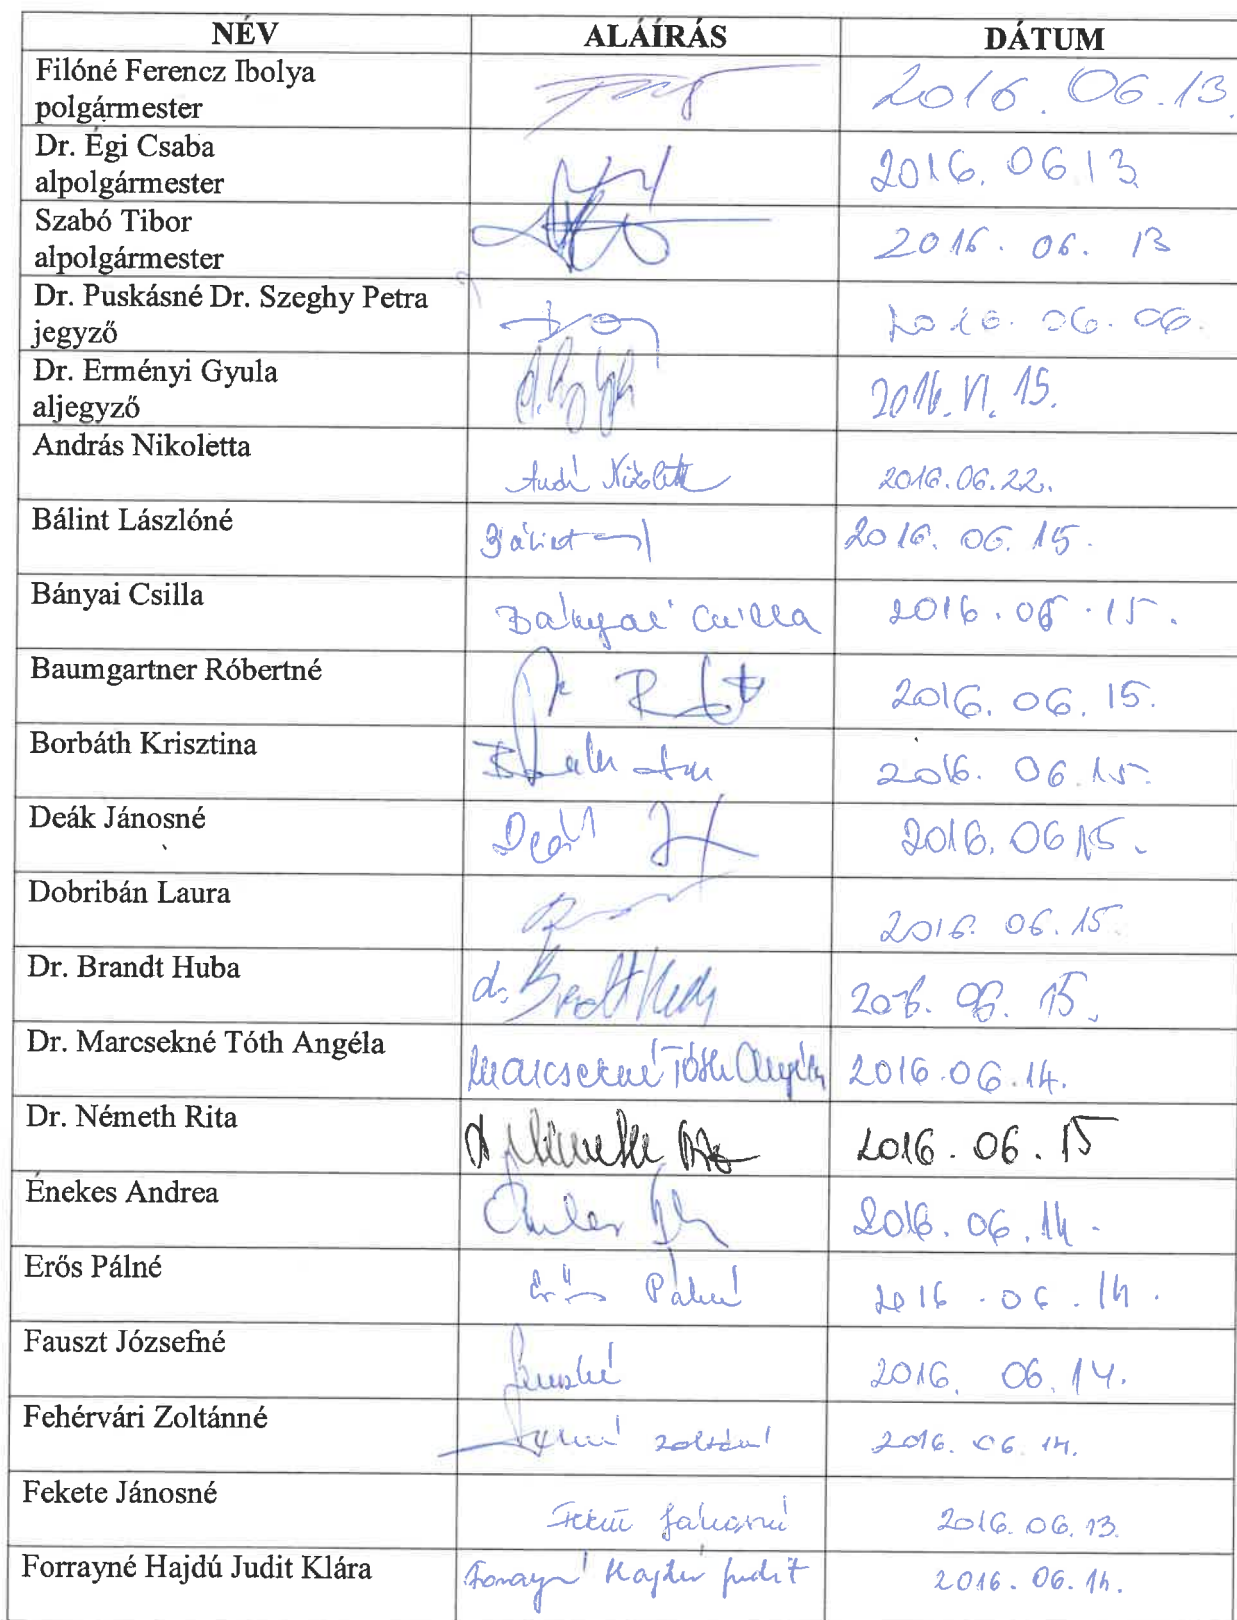 NÉV ALÁÍRÁS DÁTUM
Filóné Ferencz Ibolya
polgármester 2016. 06. 13.
Dr. Égi Csaba
alpolgármester 2016. 06 13
Szabó Tibor
alpolgármester 2016. 06. 13
Dr. Puskásné Dr. Szeghy Petra
jegyző 2016. 06. 06.
Dr. Erményi Gyula
aljegyző 2016. VI. 15.
András Nikoletta
2016.06.22.
Bálint Lászlóné
Bálint 2016. 06. 15.
Bányai Csilla
Bányai Csilla 2016. 06. 15.
Baumgartner Róbertné
2016. 06. 15.
Borbáth Krisztina
2016. 06. 15.
Deák Jánosné
Deák 2016. 06 15.
Dobribán Laura
2016. 06. 15.
Dr. Brandt Huba
dr. Brandt Huba 2016. 06. 15.
Dr. Marcsekné Tóth Angéla
Marcsekné Tóth Angéla 2016.06.14.
Dr. Németh Rita
dr Németh Rita 2016. 06. 15
Énekes Andrea
2016. 06. 14.
Erős Pálné
Erős Pálné 2016. 06. 14.
Fauszt Józsefné
2016. 06. 14.
Fehérvári Zoltánné
Zoltánné 2016. 06. 14.
Fekete Jánosné
Fekete Jánosné 2016. 06. 13.
Forrayné Hajdú Judit Klára
Forrayné Hajdú Judit 2016. 06. 14.